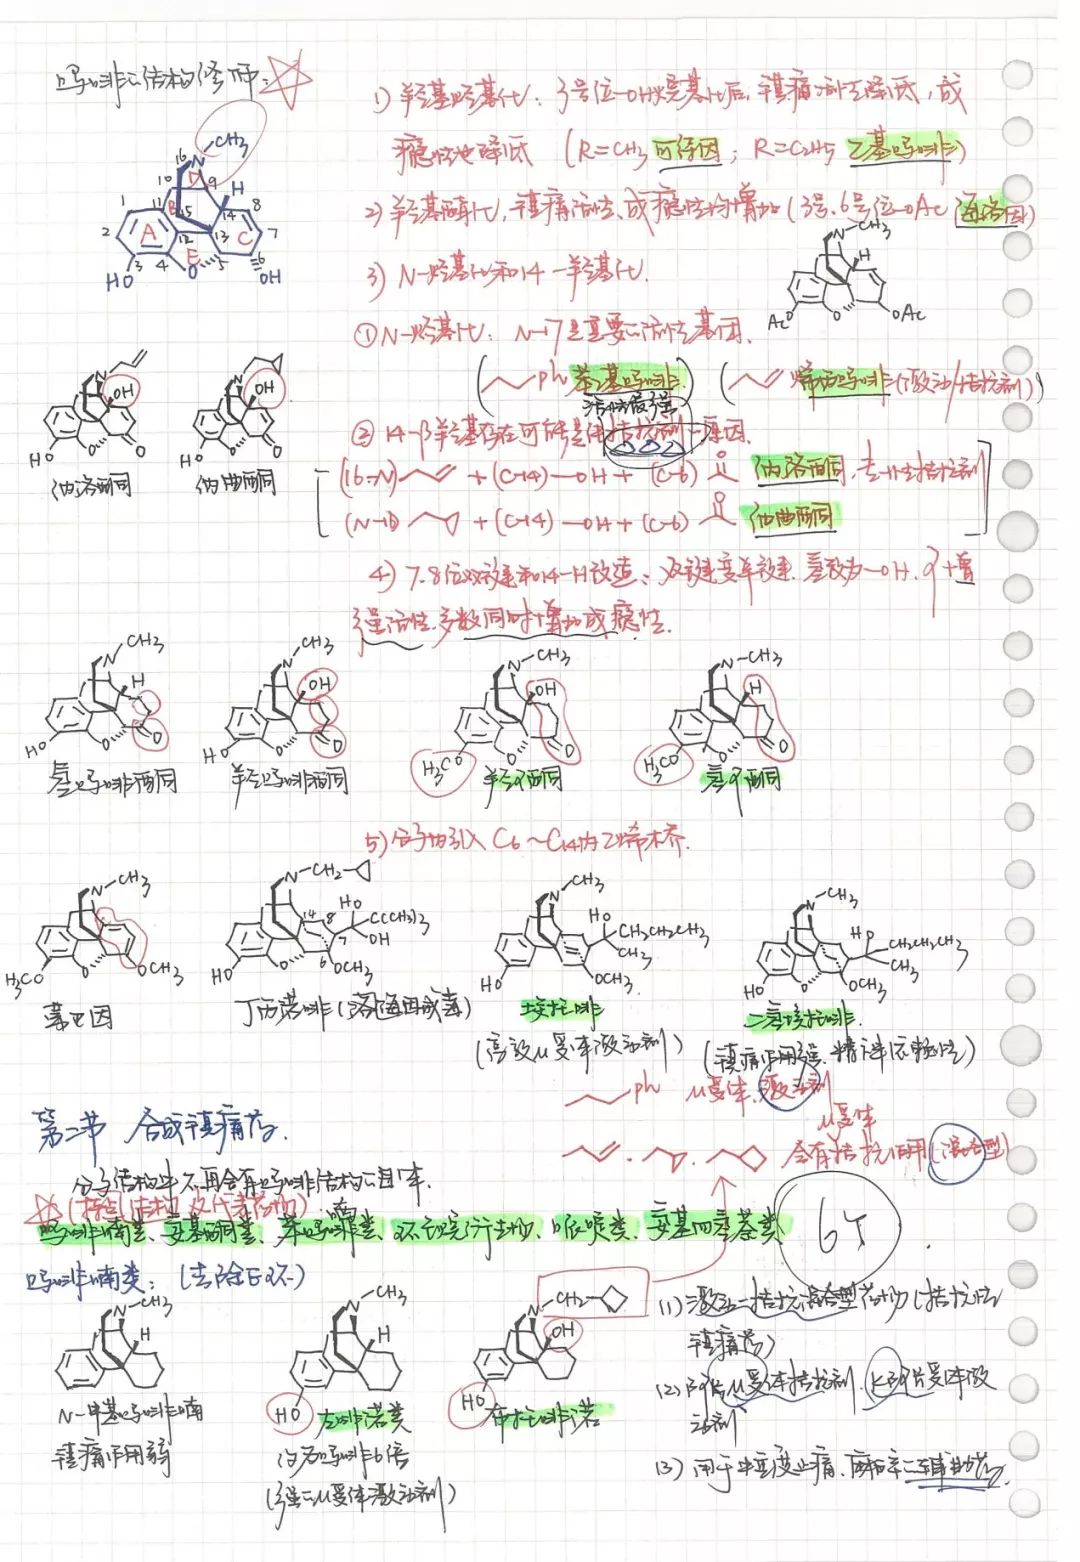 吗啡的结构修饰:
1) 羟基烃基化: 3号位-OH烷基化后,镇痛活性降低,成
瘾性也降低 (R=CH3 可待因; R=C2H5 乙基吗啡)
2) 羟基酰化,镇痛活性、成瘾性均增加(3号、6号位-OAc 海洛因)
3) N-烃基化和14-羟基化.
①N-烃基化: N-17是重要的活性基团.
( ph 苯乙基吗啡) ( 烯丙吗啡(激动/拮抗剂))
活性最强
②14-β羟基存在可能是作拮抗剂的原因.
(16-N) + (C-14)-OH + (C-6) 纳洛酮,专一性拮抗剂
(N-17) + (C-14)-OH + (C-6) 纳曲酮
4) 7.8位双键和14-H改造: 双键变单键. 氢改为-OH. 可增
强活性.多数同时增加成瘾性.
1 2 3 4 5 6 7 8 9 10 11 12 13 14 15 16
A B C D E
N-CH3 H HO O OH
N-CH3 H AcO O OAc
N OH HO O O
纳洛酮
N OH HO O O
纳曲酮
N-CH3 H HO O O
氢吗啡酮
N-CH3 OH HO O O
羟吗啡酮
N-CH3 OH H3CO O O
羟可酮
N-CH3 H H3CO O O
氢可酮
5) 分子内引入C6~C14内乙烯桥.
N-CH3 H3CO O OCH3
蒂巴因
N-CH2 HO C(CH3)3 OH 14 8 7 6 HO O OCH3
丁丙诺啡(海洛因成毒)
N-CH3 HO CH2CH2CH3 CH3 HO O OCH3
埃托啡
(高效μ受体激动剂)
N-CH3 HO CH2CH2CH3 CH3 HO O OCH3
二氢埃托啡.
(镇痛作用强.精神依赖性)
ph μ受体.激动剂
μ受体
含有拮抗作用(混合型)
第二节 合成镇痛药.
分子结构中不再含有吗啡结构的母体.
(掌握结构及代表药物)
吗啡喃类、氨基酮类、苯吗喃类、环己烷衍生物、哌啶类、氨基四氢萘类
6个
吗啡喃类: (去除E环)
N-CH3 H
N-甲基吗啡喃
镇痛作用弱
N-CH3 H HO
左啡诺类
约为吗啡6倍
(强的μ受体激动剂)
N-CH2 OH HO
布托啡诺
(1) 激动-拮抗混合型药物(拮抗性
镇痛药)
(2) 阿片μ受体拮抗剂.κ阿片受体激
动剂
(3) 用于中重度止痛.麻醉的辅助药.